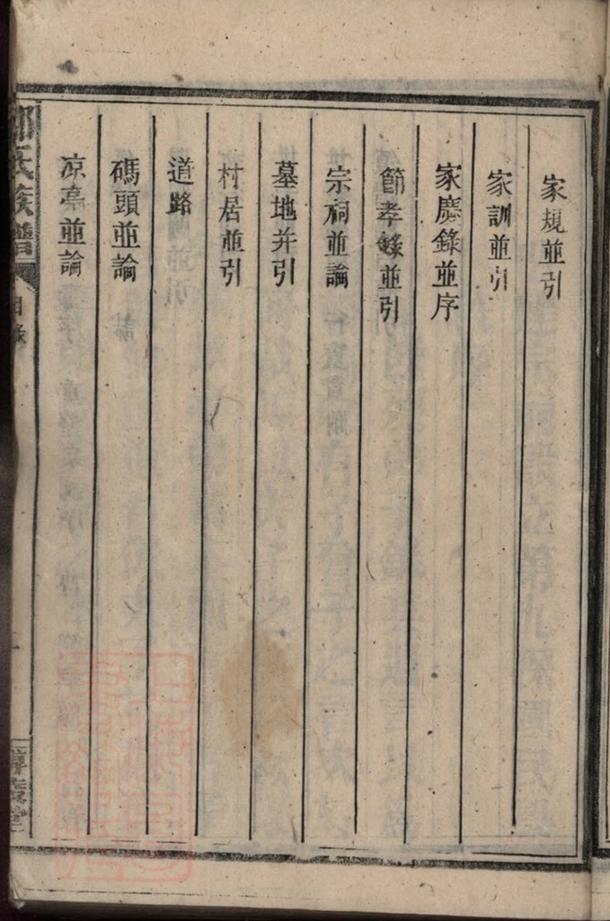 家規並引
家訓並引
家慶錄並序
節孝錄並引
宗祠並論
墓地并引
村居並引
道路
碼頭並論
凉亭並論
氏族譜
目錄